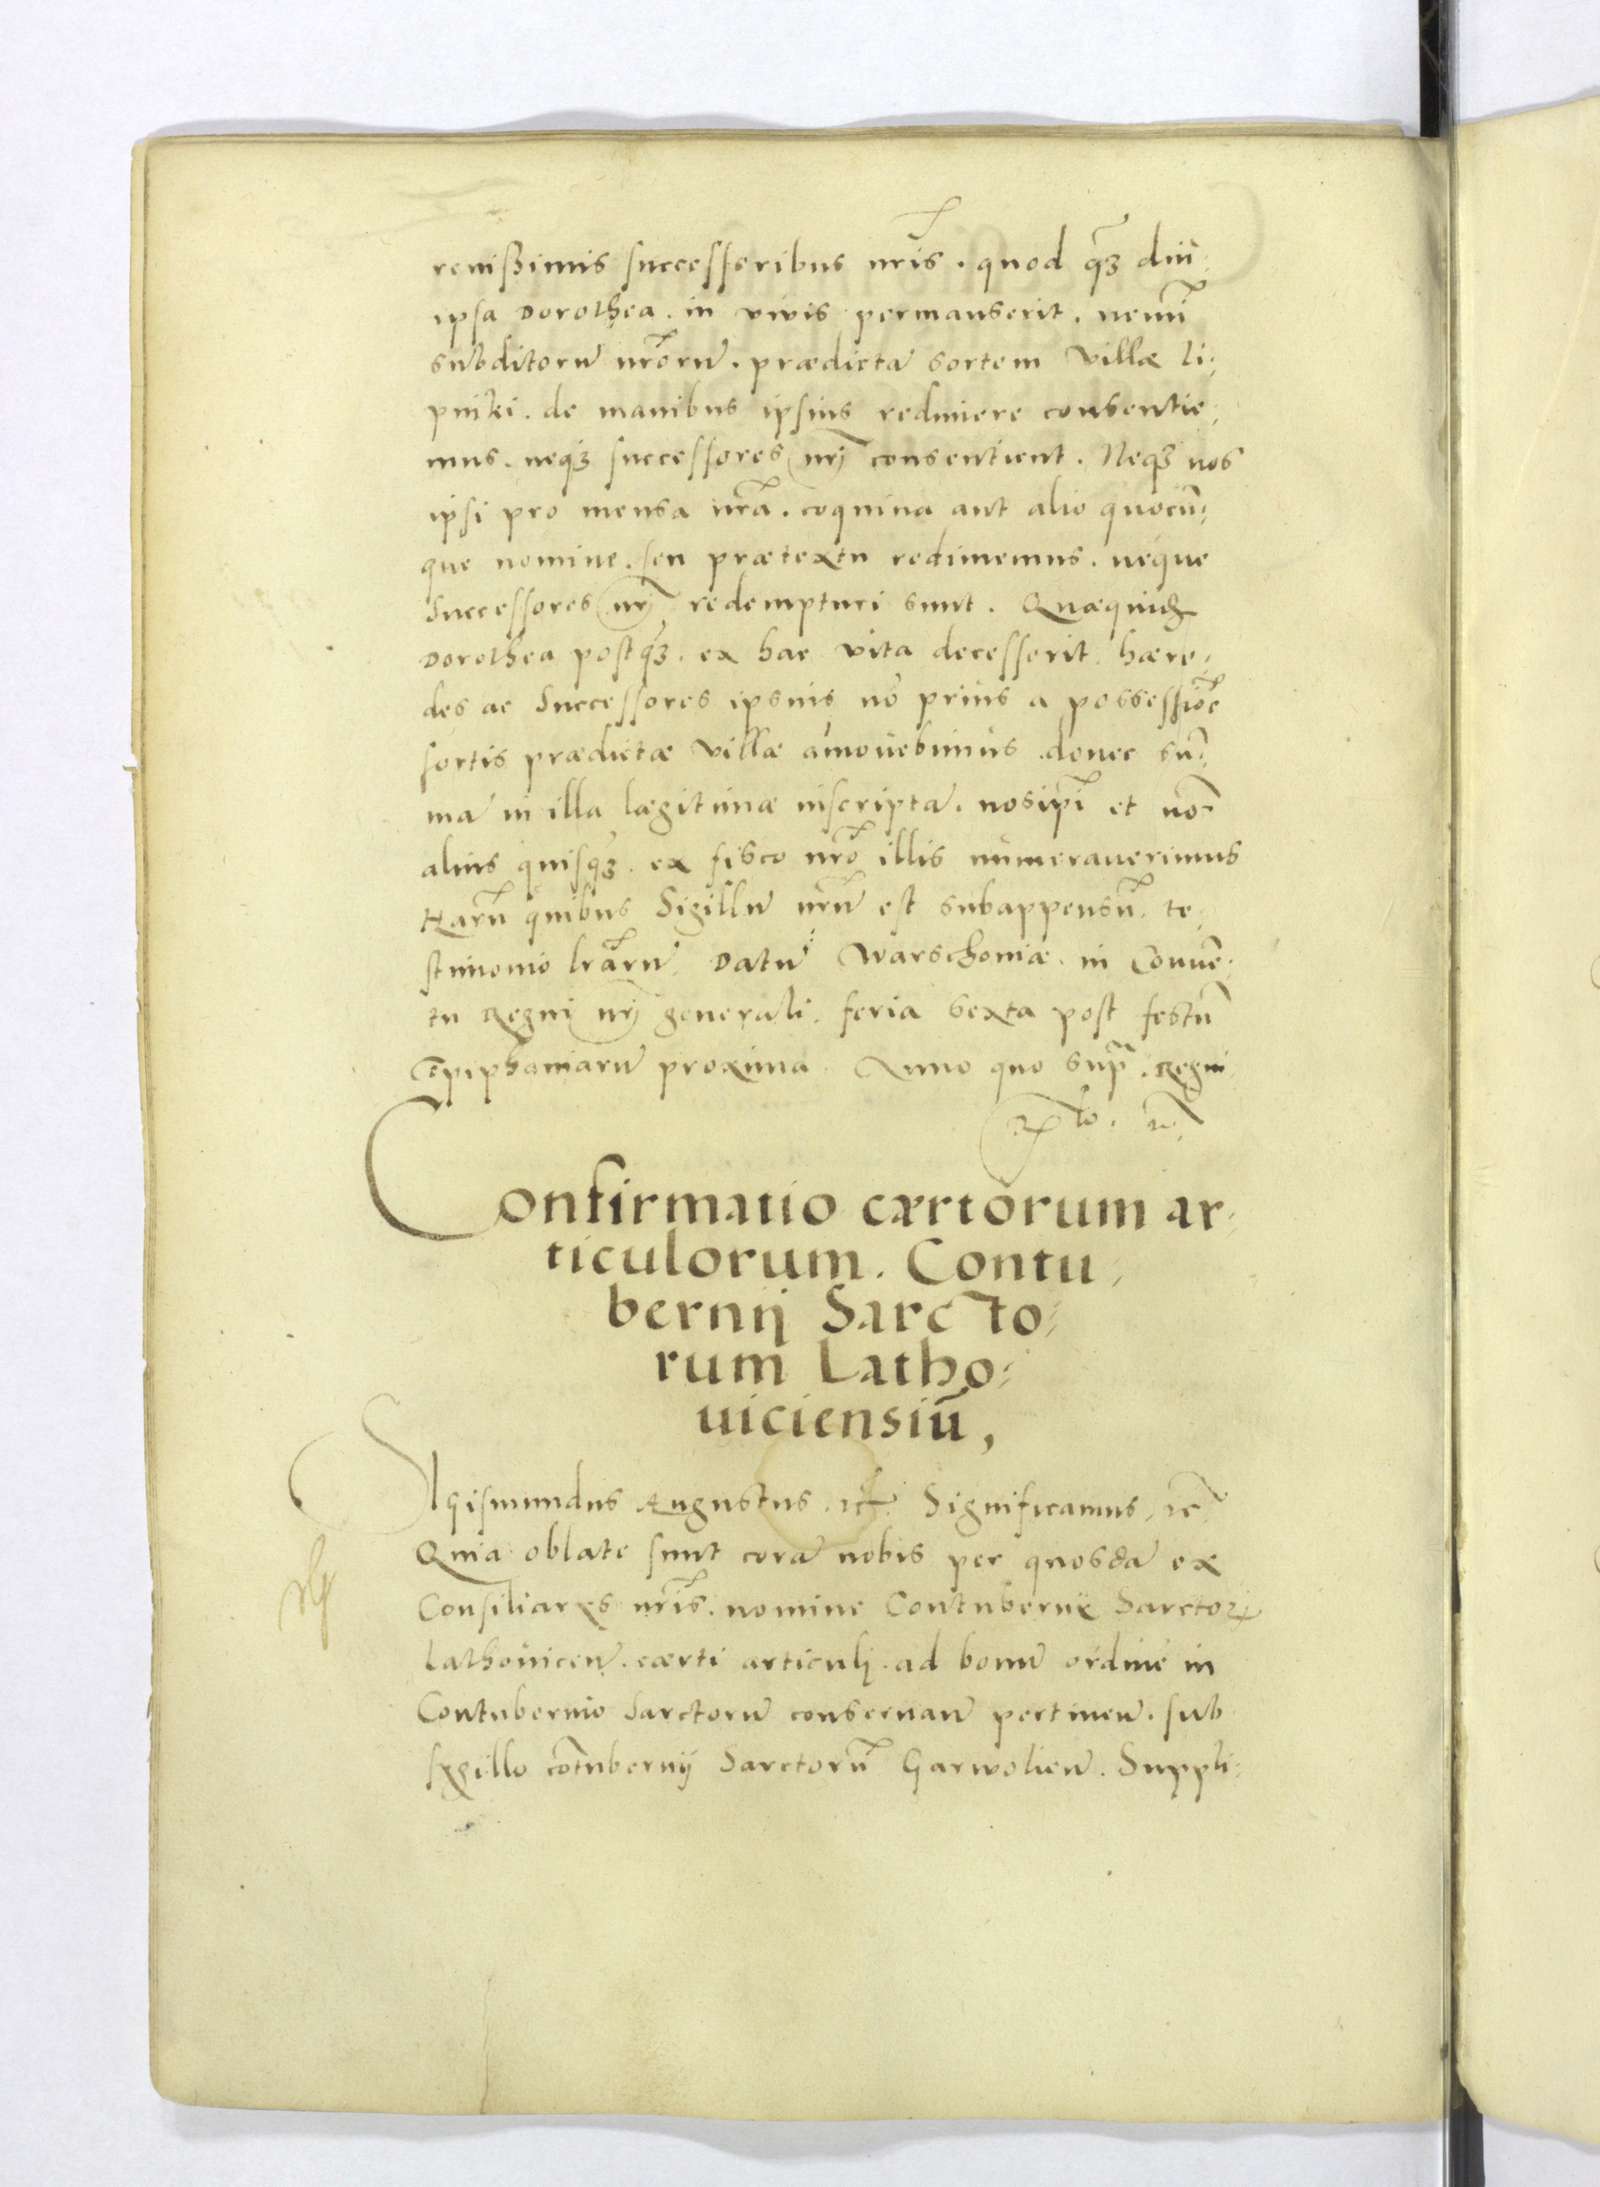 renißimis successoribus nr̃is. quod q̃ȝ diu
ipsa Dorothea. in vivis permanserit. nemĩ
subditorũ nr̃orũ. prædictã sortem villæ Li-
pniki. de manibus ipsius redimere consentie-
mus. neqȝ successores nr̃j consentient. Neqȝ nos
ipsi pro mensa nr̃a. coquina aut alio quocũ-
que nomine. seu prætextu redimemus. neque
Successores nr̃j redempturi sunt. Quæquid̃
Dorothea postq̃ȝ. ex hac vita decesserit. hære-
des ac Successores ipsius nõ prius a possessiõe
sortis prædictæ villæ amovebimus. donec sũ-
mã in illa lægitimæ inscriptã. nosip̃i et nõ
alius quisq̃ȝ. ex fisco nr̃o illis numeraverimus
Harũ quibus Sigillũ nr̃ũ est subappensũ. te-
stimonio lr̃arũ. Datũ Warschoviæ. in Conuẽ-
tu Regni nr̃j generali. feria sexta post festũ
Epiphaniarũ proxima. Anno quo sup̃. Regni

Confirmatio cærtorum ar-
ticulorum. Contu-
bernij Sarcto-
rum Latho-
uiciensiũ,
Sigismundus Augustus. ꝛc̃. Significamus. ꝛc̃
Quia oblate sunt corã nobis per quosdã ex
Consiliarys nr̃is. nomine Contubernij Sarctoꝝ
Lathovicen̄. cærti articulj. ad bonũ ordinẽ in
Contubernio Sarctorũ conservan̄ pertinen̄. sub
sygillo cõtubernij Sarctorũ Garwolien̄. Suppli-